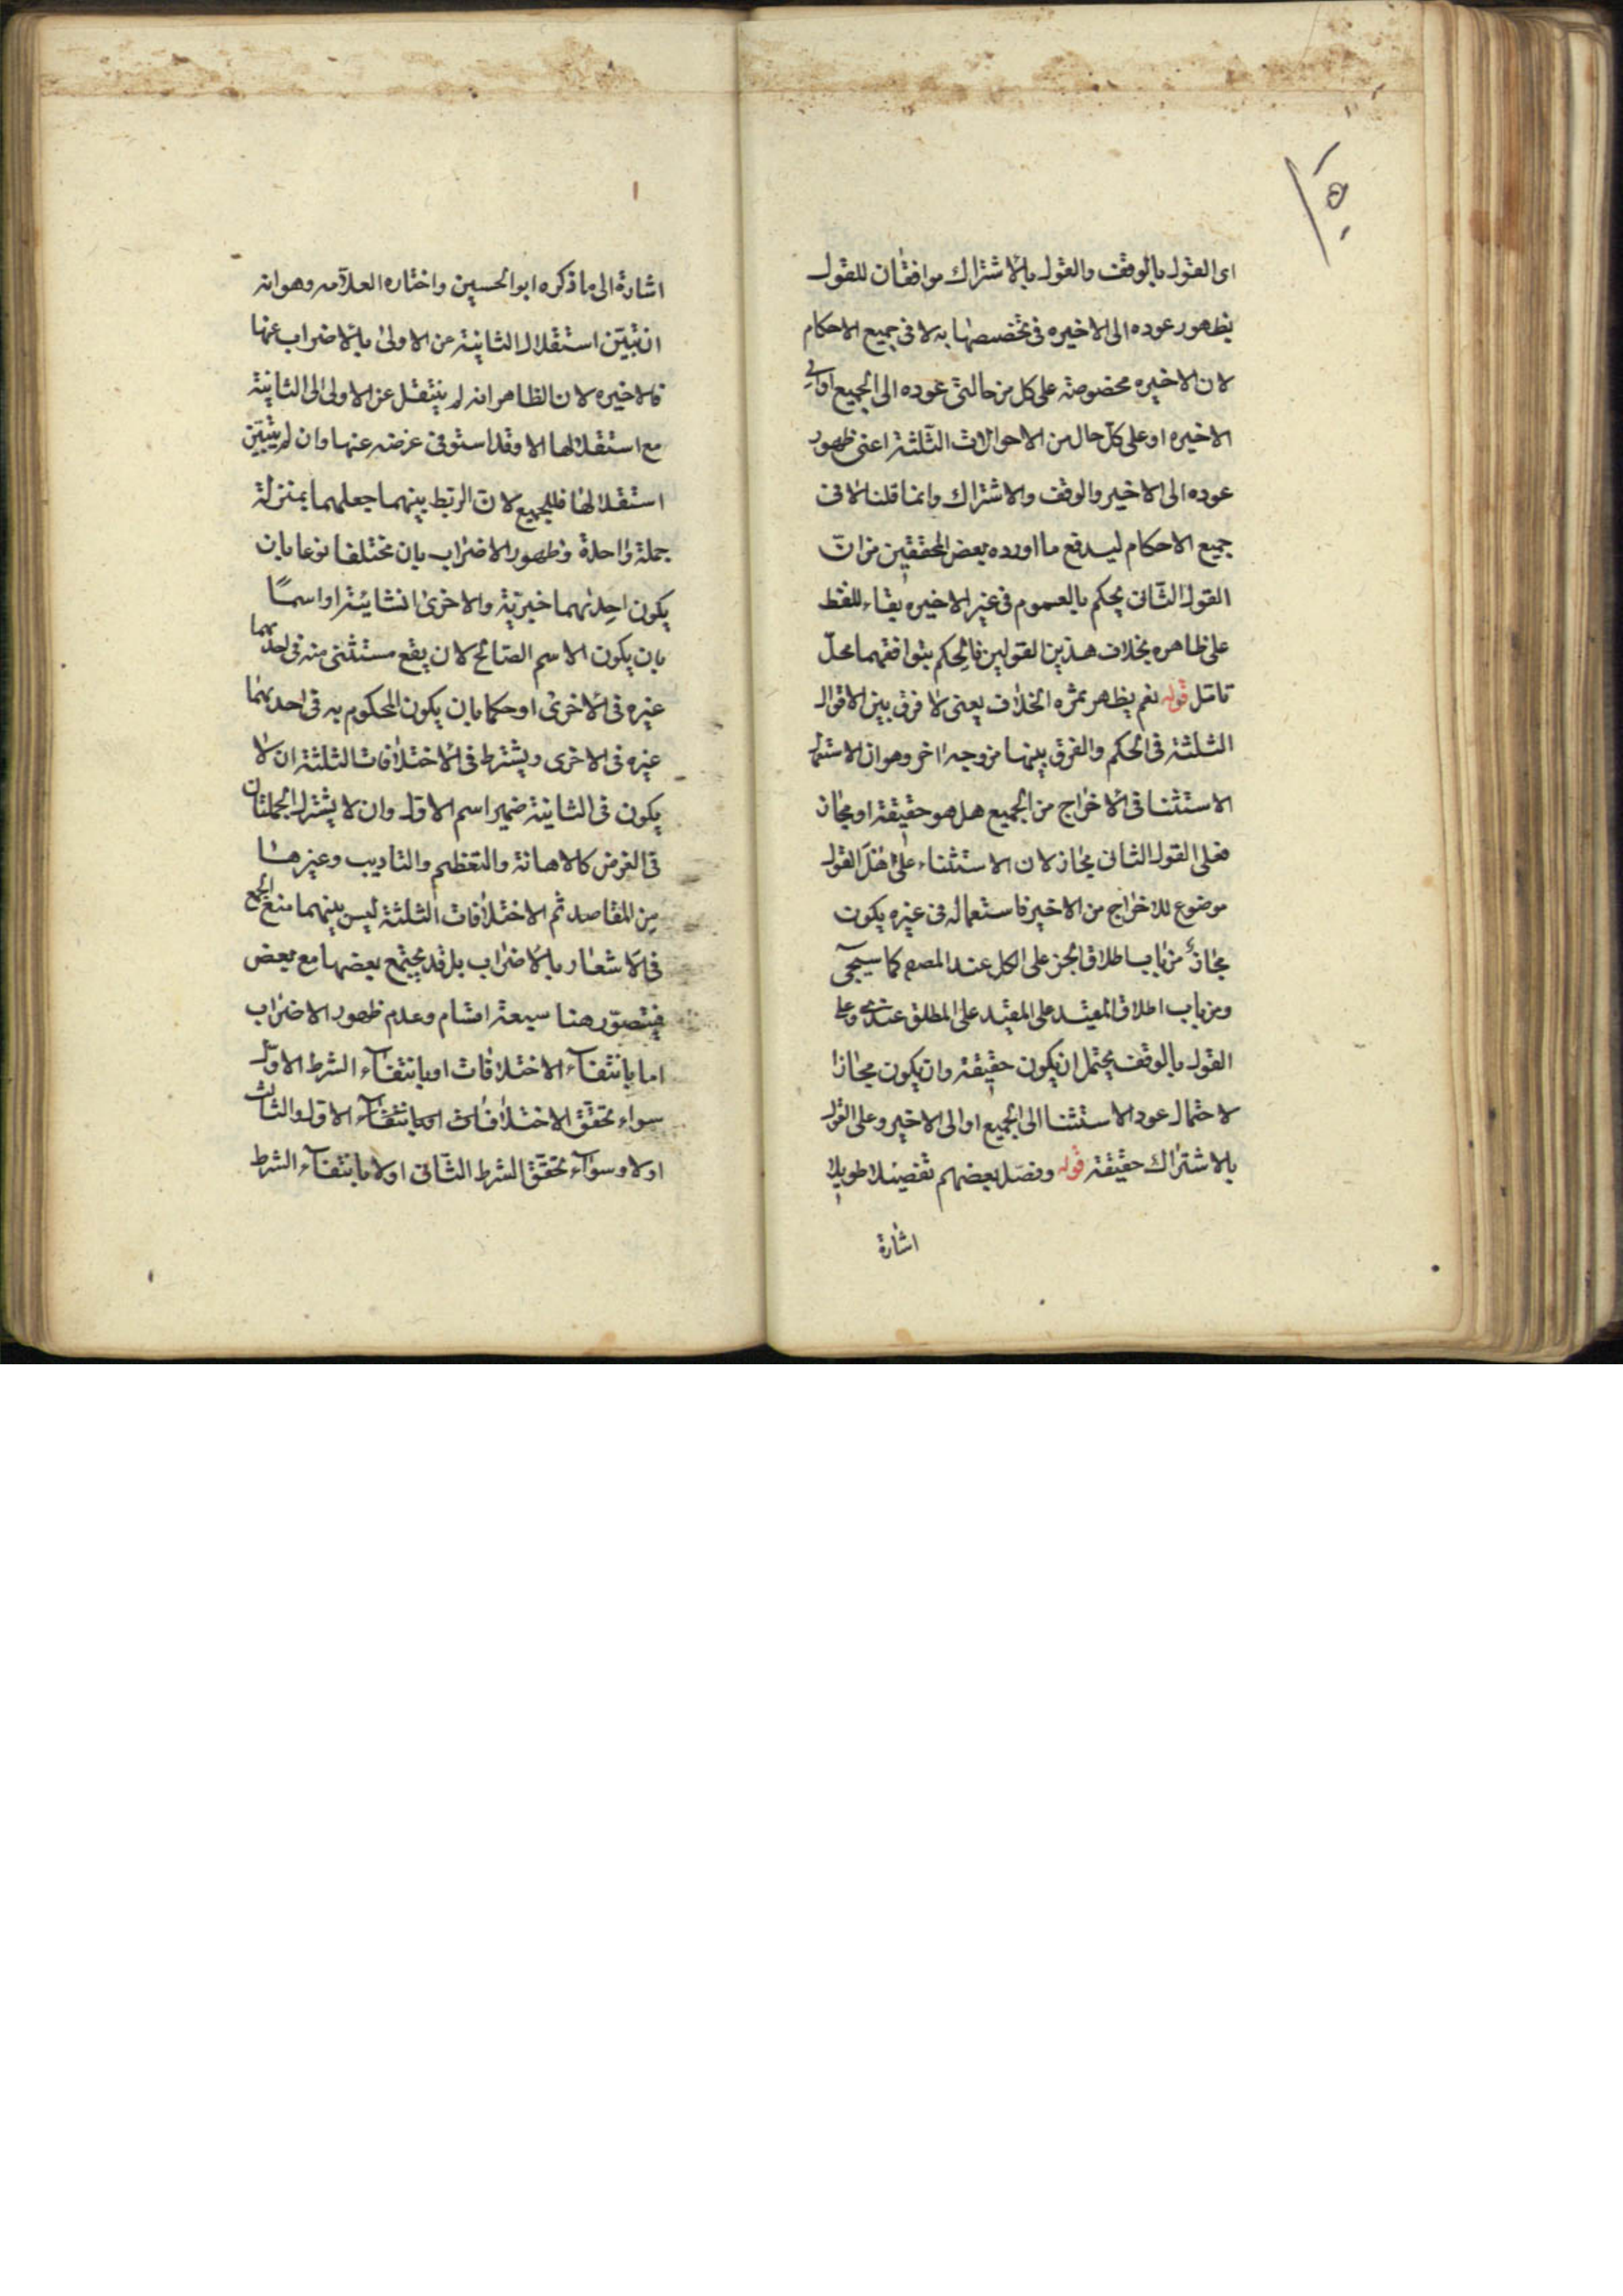 ١٥٠
اى القول بالوقف والقول بالاشتراك موافقان للقول
بظهور عوده الى الاخيره فى تخصيصها به لا فى جميع الاحكام
لان الاخيره مخصوصة على كل من حالتى عوده الى الجميع او الى
الاخيره او على كل حال من الاحوالات الثلثة اعنى ظهور
عوده الى الاخير والوقف والاشتراك وانما قلنا لا فى
جميع الاحكام ليدفع ما اورده بعض المحققين من ان
القول الثانى يحكم بالعموم فى غير الاخيره بقاء للفظ
على ظاهره بخلاف هذين القولين فالحكم بتوافقهما محل
تامل قوله نعم يظهر ثمره الخلاف يعنى لا فرق بين الاقوال
الثلثة فى الحكم والفرق بينها من وجه اخر وهو ان الاستعمال
الاستثنا فى الاخراج من الجميع هل هو حقيقة او مجاز
فعلى القول الثانى مجاز لان الاستثناء على هذا القول
موضوع للاخراج من الاخير فاستعماله فى غيره يكون
مجازا من باب اطلاق الجزء على الكل عند المصم كما سيجئ
ومن باب اطلاق المقيد على المقيد على المطلق وعلى
القول بالوقف يحتمل ان يكون حقيقة وان يكون مجازا
لاحتمال عود الاستثنا الى الجميع او الى الاخير وعلى القول
بالاشتراك حقيقة قوله وفصل بعضهم تفصيلا طويلا
اشارة
اشارة الى ما ذكره ابو الحسين واختاره العلامه وهو انه
ان تبين استقلال الثانية من الاولى بالاضراب عنها
فالاخيره لان الظاهر انه لم ينتقل عن الاولى الى الثانية
مع استقلالها الا وقد استوفى غرضه عنها وان لم يتبين
استقلالها فللجميع لان الربط بينهما جعلهما بمنزلة
جملة واحدة وظهور الاضراب بان مختلفا نوعا بان
يكون احدٰيهما خبرية والاخرى انشائية او اسمًا
بان يكون الاسم الصالح لان يقع مستثنى منه فى احدٰيهما
غيره فى الاخرى او حكما بان يكون المحكوم به فى احدٰيهما
غيره فى الاخرى ويشترط فى الاختلافات الثلثة ان لا
يكون فى الثانية ضمير اسم الاول وان لا يشترك الجملتان
فى الغرض كالاهانة والتعظيم والتاديب وغيرها
من المقاصد ثم الاختلافات الثلثة ليس بينهما منع الجمع
فى الاشعار بالاضراب بل قد يجتمع بعضها مع بعض
فيتصور هنا سبعة اقسام وعدم ظهور الاضراب
اما بانتفآء الاختلافات او بانتفآء الشرط الاول
سواء تحقق الاختلافات او بانتفآء الاول والثالث
اولا وسوآء تحقق الشرط الثانى اولا بانتفآء الشرط